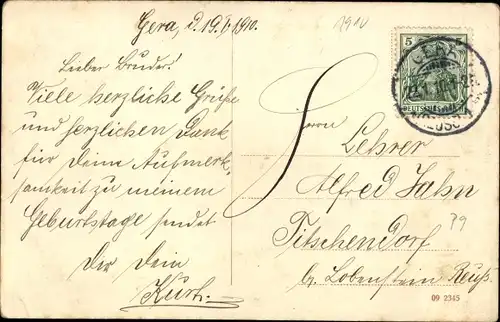 Gera, d. 19.1.1910.
1910
Lieber Bruder!
Viele herzliche Grüße
und herzlichen Dank
für Deine Aufmerk-
samkeit zu meinem
Geburtstage sendet
Dir Dein
Kurt.
5 5
DEUTSCHES REICH
GERA
Herrn
Lehrer
Alfred Jahn
Titschendorf
b/ Lobenstein Reuß.
P9
09 2345